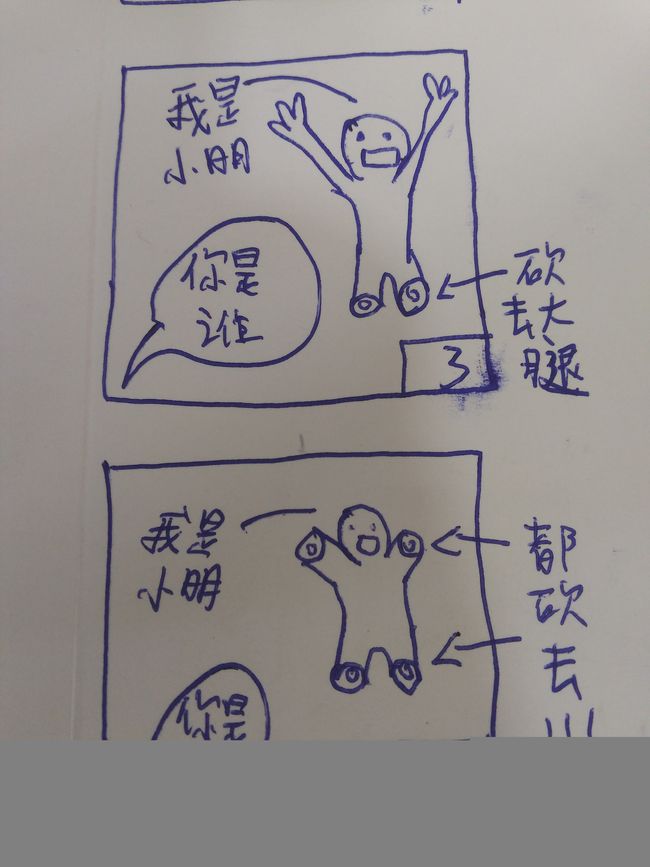 我是
小明
你是
谁
砍
去大
腿
3
我是
小明
都
砍
去
!!!
你是